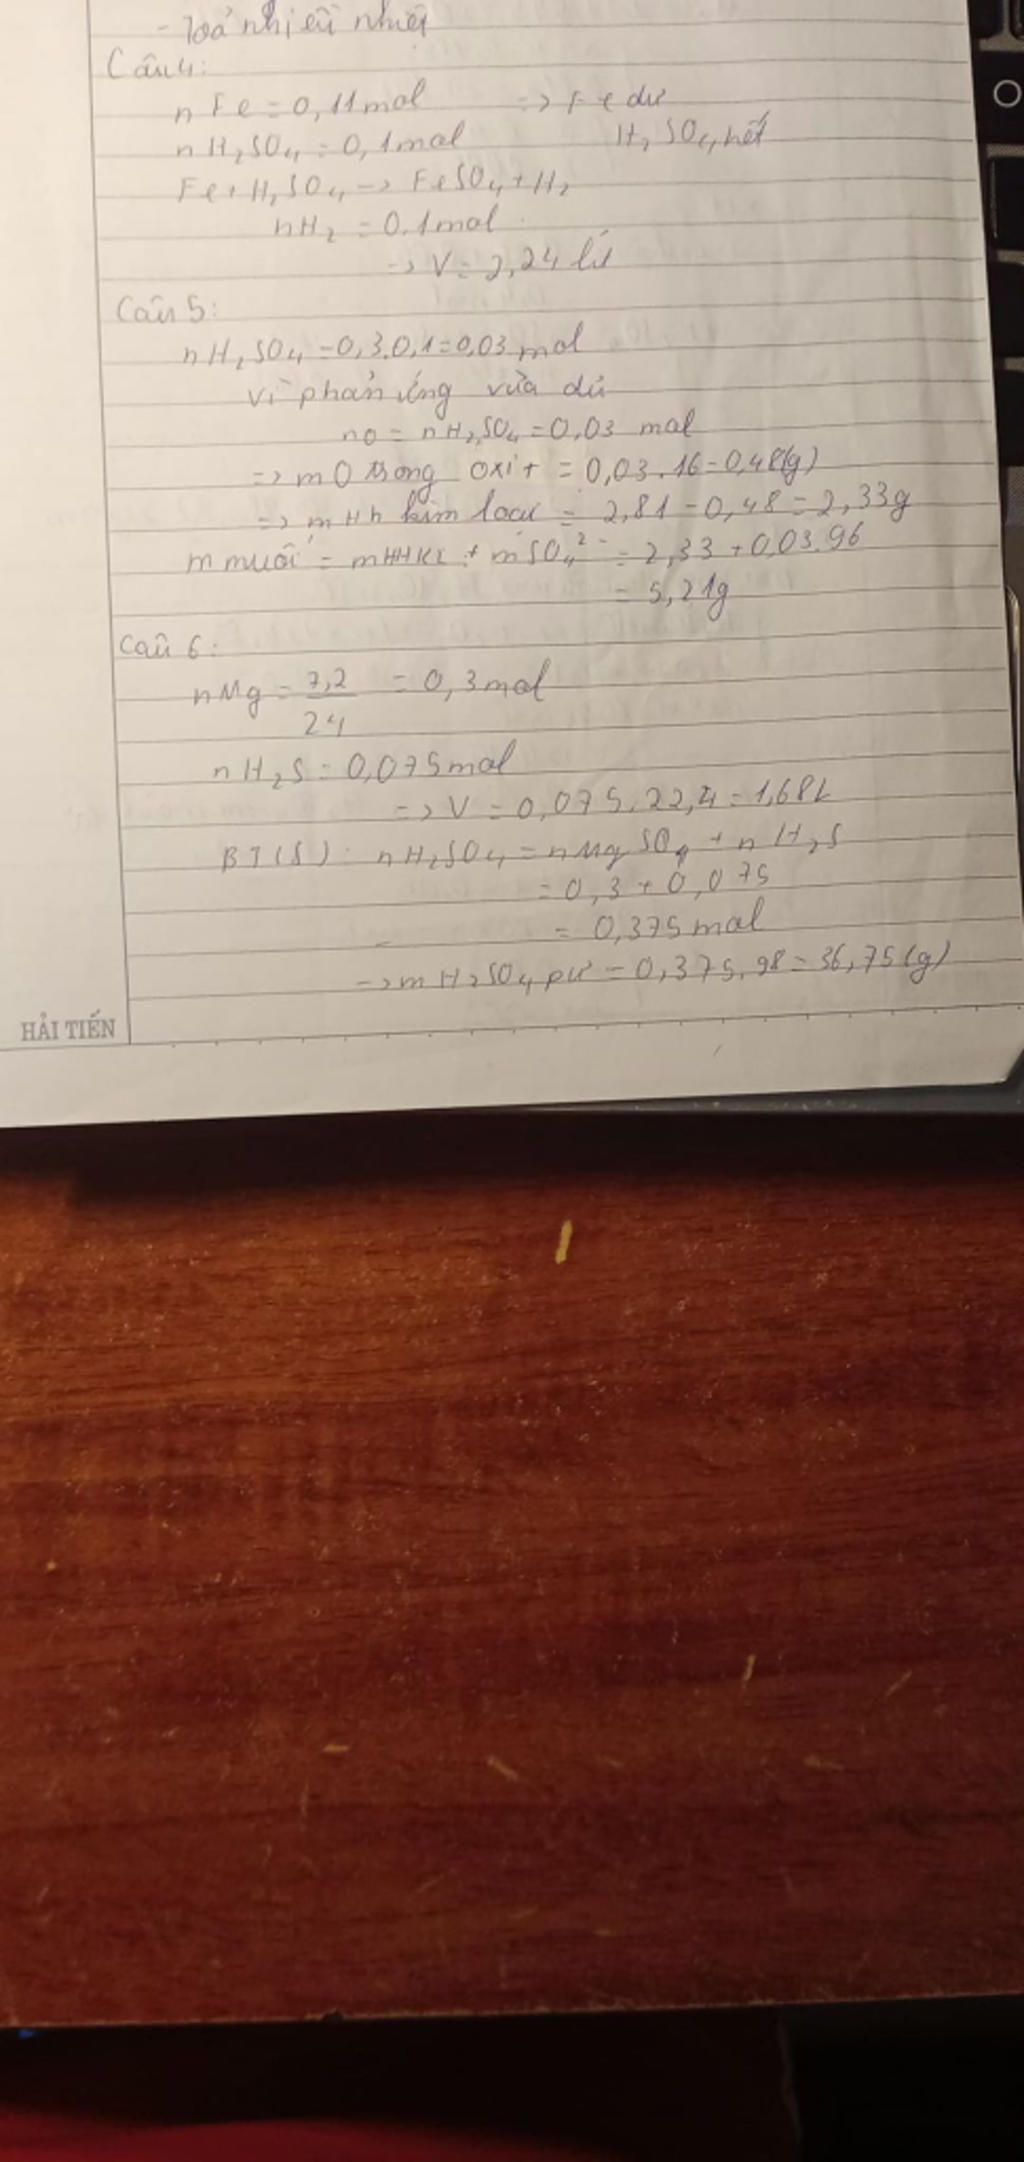 - Toả nhiều nhiệt
Câu 4:
nFe = 0,11mol => Fe dư
nH2SO4 = 0,1mol H2SO4 hết
Fe + H2SO4 -> FeSO4 + H2
nH2 = 0,1mol
-> V = 2,24 lít
Câu 5:
nH2SO4 = 0,3.0,1 = 0,03 mol
Vì phản ứng vừa đủ
nO = nH2SO4 = 0,03 mol
=> mO trong oxit = 0,03.16 = 0,48(g)
=> mHh kim loại = 2,81 - 0,48 = 2,33g
m muối = mHHKL + mSO4²⁻ = 2,33 + 0,03.96
= 5,21g
Câu 6:
nMg = 7,2/24 = 0,3mol
nH2S = 0,075mol
=> V = 0,075.22,4 = 1,68L
BT(S): nH2SO4 = nMgSO4 + nH2S
= 0,3 + 0,075
= 0,375mol
-> mH2SO4 pư = 0,375.98 = 36,75(g)
HẢI TIẾN